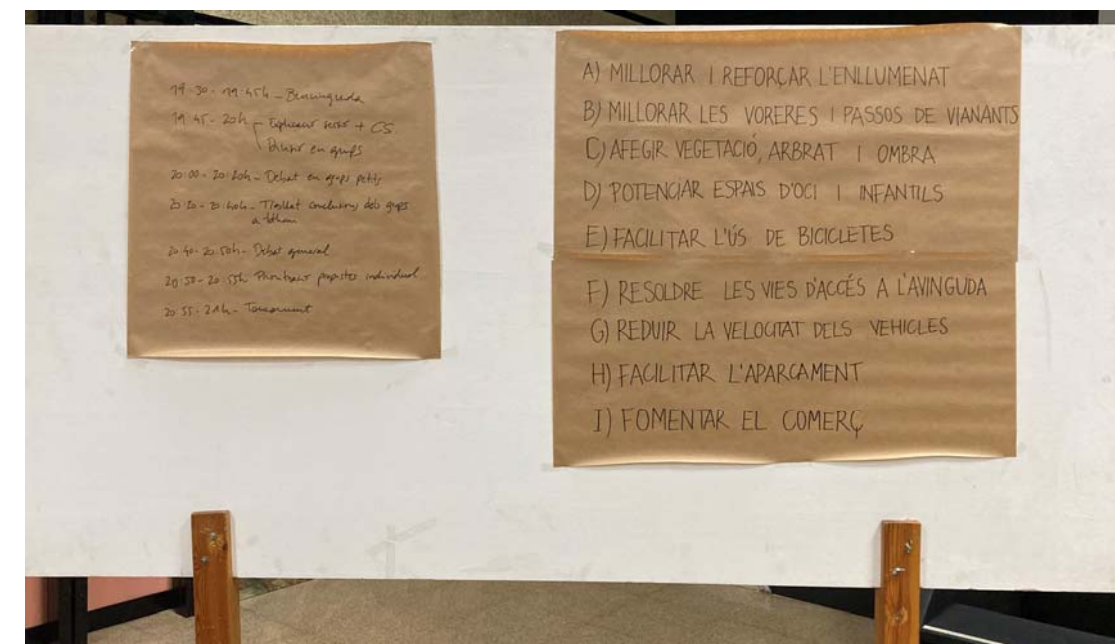 19:30 - 19:45h - Benvinguda
19:45 - 20h - Explicació sessió + CS
Divisió en grups
20:00 - 20:20h - Debat en grups petits
20:20 - 20:40h - Trasllat conclusions dels grups
a tothom
20:40 - 20:50h - Debat general
20:50 - 20:55h Priorització propostes individual
20:55 - 21h - Tancament
A) MILLORAR I REFORÇAR L'ENLLUMENAT
B) MILLORAR LES VORERES I PASSOS DE VIANANTS
C) AFEGIR VEGETACIÓ, ARBRAT I OMBRA
D) POTENCIAR ESPAIS D'OCI I INFANTILS
E) FACILITAR L'ÚS DE BICICLETES
F) RESOLDRE LES VIES D'ACCÉS A L'AVINGUDA
G) REDUIR LA VELOCITAT DELS VEHICLES
H) FACILITAR L'APARCAMENT
I) FOMENTAR EL COMERÇ